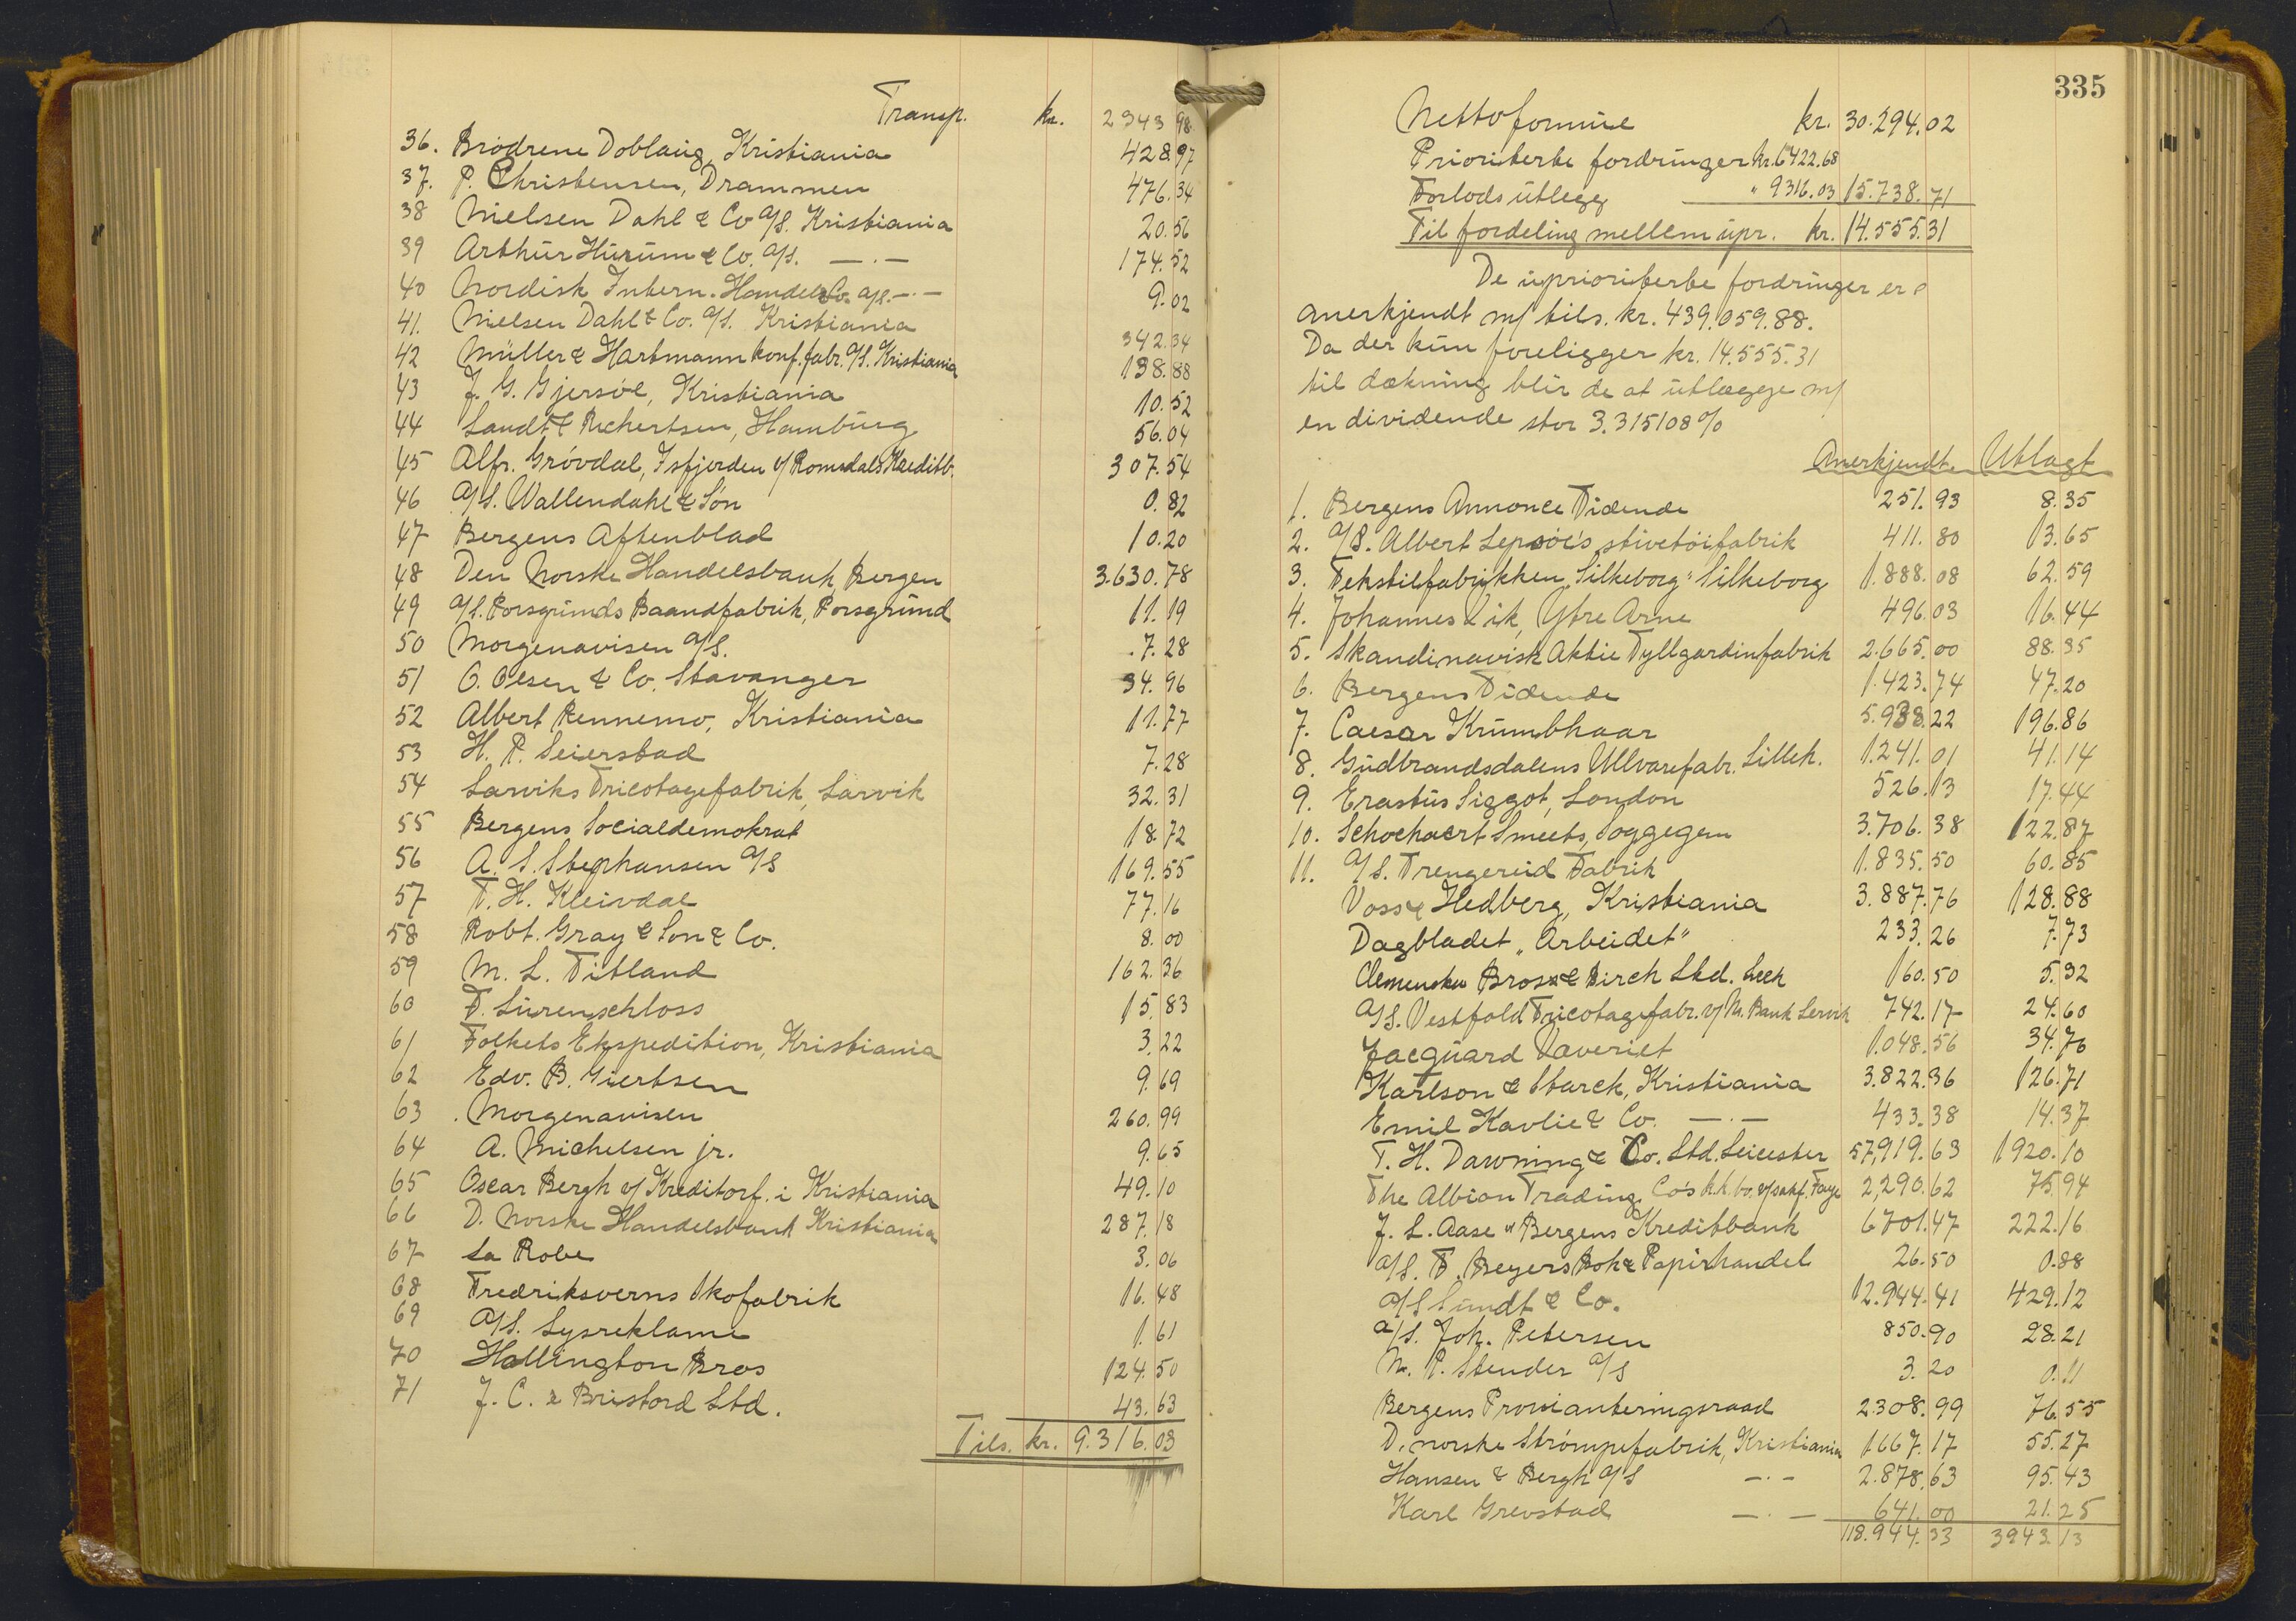 Transp. kr. 2343 98
36. Brødrene Doblaug, Kristiania 428.97
37. P. Christensen, Drammen 476.34
38 Nielsen Dahl & Co A/S. Kristiania 20.56
39 Arthur Hurum & Co. A/S. —.— 174.52
40 Nordisk Intern. Handels Co. A/S. —.— 9.02
41. Nielsen Dahl & Co. A/S. Kristiania 342.34
42 Müller & Hartmann konf. fabr. A/S. Kristiania 138.88
43 J. G. Gjersøe, Kristiania 10.52
44 Landt & Richertsen, Hamburg 56.04
45 Alfr. Grøvdal, Isfjorden v/ Romsdals Kreditb. 307.54
46 A/S. Wallendahl & Søn 0.82
47 Bergens Aftenblad 10.20
48 Den Norske Handelsbank, Bergen 3.630.78
49 A/S. Porsgrunds Baandfabrik, Porsgrund 11.19
50 Morgenavisen A/S. 7.28
51 O. Olsen & Co. Stavanger 34.96
52 Albert Rennemo, Kristiania 11.77
53 H. P. Seierstad 7.28
54 Larviks Tricotagefabrik, Larvik 32.31
55 Bergens Socialdemokrat 18.72
56 A. S. Stephansen A/S 169.55
57 T. H. Kleivdal 77.16
58 Robt. Gray & Son & Co. 8.00
59 M. L. Titland 162.36
60 T. Lürenschloss 15.83
61 Folkets Ekspedition, Kristiania 3.22
62 Edv. B. Giertsen 9.69
63 Morgenavisen 260.99
64 A. Michelsen jr. 9.65
65 Oscar Bergh v/ Kreditorf. i Kristiania 49.10
66 D. Norske Handelsbank Kristiania 287.18
67 La Robe 3.06
68 Fredriksverns Skofabrik 16.48
69 A/S. Lysreklame 1.61
70 Hollington Bros 124.50
71 J. C. & Bristord Ltd. 43.63
Tils. kr. 9.316.03
335
Nettoformue kr. 30.294.02
Prioriterte fordringer kr. 6422.68
Forlods utlegg " 9316.03 15.738.71
Til fordeling mellem upr. kr. 14.555.31
De uprioriterte fordringer er
anerkjendt m/ tils. kr. 439.059.88.
Da der kun foreligger kr. 14.555.31
til dækning blir de at utlægge m/
en dividende stor 3.315108 %
Anerkjendt Utlagt
1. Bergens Annonce Tidende 251.93 8.35
2. A/S. Albert Lepsøe's stivetøifabrik 411.80 13.65
3. Tekstilfabrikken „Silkeborg" Silkeborg 1.888.08 62.59
4. Johannes Vik, Ytre Arne 496.03 16.44
5. Skandinavisk Aktie Tyllgardinfabrik 2.665.00 88.35
6. Bergens Tidende 1.423.74 47.20
7. Caesar Krumbhaar 5.938.22 196.86
8. Gudbrandsdalens Ullvarefabr. Lilleh. 1.241.01 41.14
9. Erastus Siggot, London 526.13 17.44
10. Schochaert Smeets, Soggegem 3.706.38 122.87
11. A/S. Trengereid Fabrik 1.835.50 60.85
Voss & Hedberg, Kristiania 3.887.76 128.88
Dagbladet „Arbeidet" 233.26 7.73
Bros & Birch Ltd. Leek 160.50 5.32
A/S. Vestfold Tricotagefabr. v/ N. Bank Larvik 742.17 24.60
Jacquard Væveriet 1.048.56 34.76
Karlson & Starck, Kristiania 3.822.36 126.71
Emil Kavlie & Co. —.— 433.38 14.37
T. H. Dawning & Co. Ltd. Leicester 57,919.63 1920.10
The Albion Trading Co's k.k. bo. v/ sakf. Faye 2,290.62 75.94
J. L. Aase v/ Bergens Kreditbank 6701.47 222.16
A/S. F. Beyers Bok & Papirhandel 26.50 0.88
A/S Sundt & Co. 12.944.41 429.12
A/S. Joh. Petersen 850.90 28.21
N. P. Stender A/S 3.20 0.11
Bergens Provianteringsraad 2.308.99 76.55
D. norske Strømpefabrik, Kristiania 1.667.17 55.27
Hansen & Bergh A/S —.— 2.878.63 95.43
Karl Grevstad —.— 641.00 21.25
118.944.33 3943 13